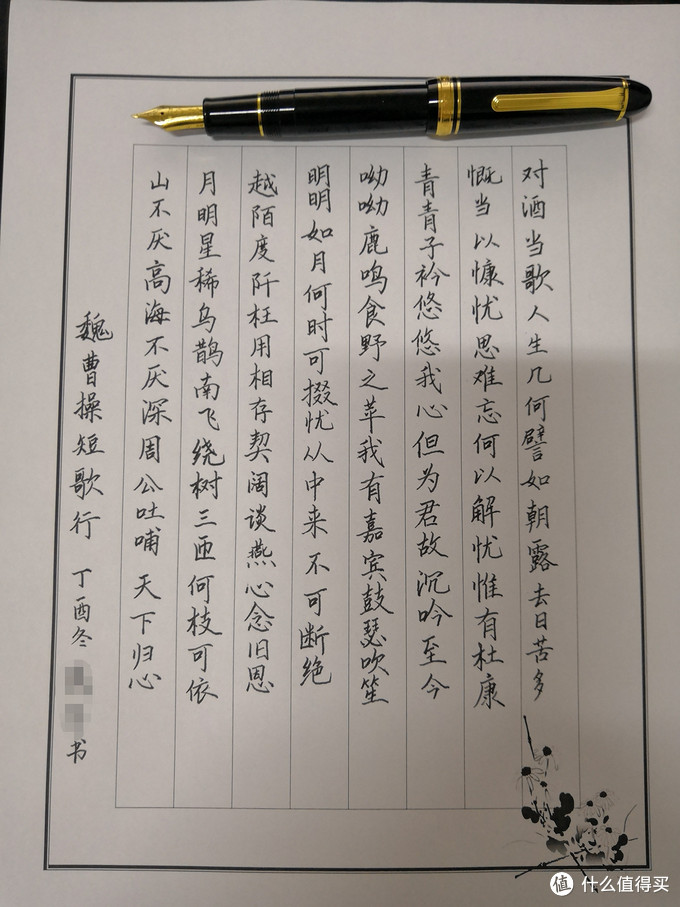 对酒当歌人生几何譬如朝露去日苦多
慨当以慷忧思难忘何以解忧惟有杜康
青青子衿悠悠我心但为君故沉吟至今
呦呦鹿鸣食野之苹我有嘉宾鼓瑟吹笙
明明如月何时可掇忧从中来不可断绝
越陌度阡枉用相存契阔谈燕心念旧恩
月明星稀乌鹊南飞绕树三匝何枝可依
山不厌高海不厌深周公吐哺天下归心
魏曹操短歌行 丁酉冬 书
值 什么值得买